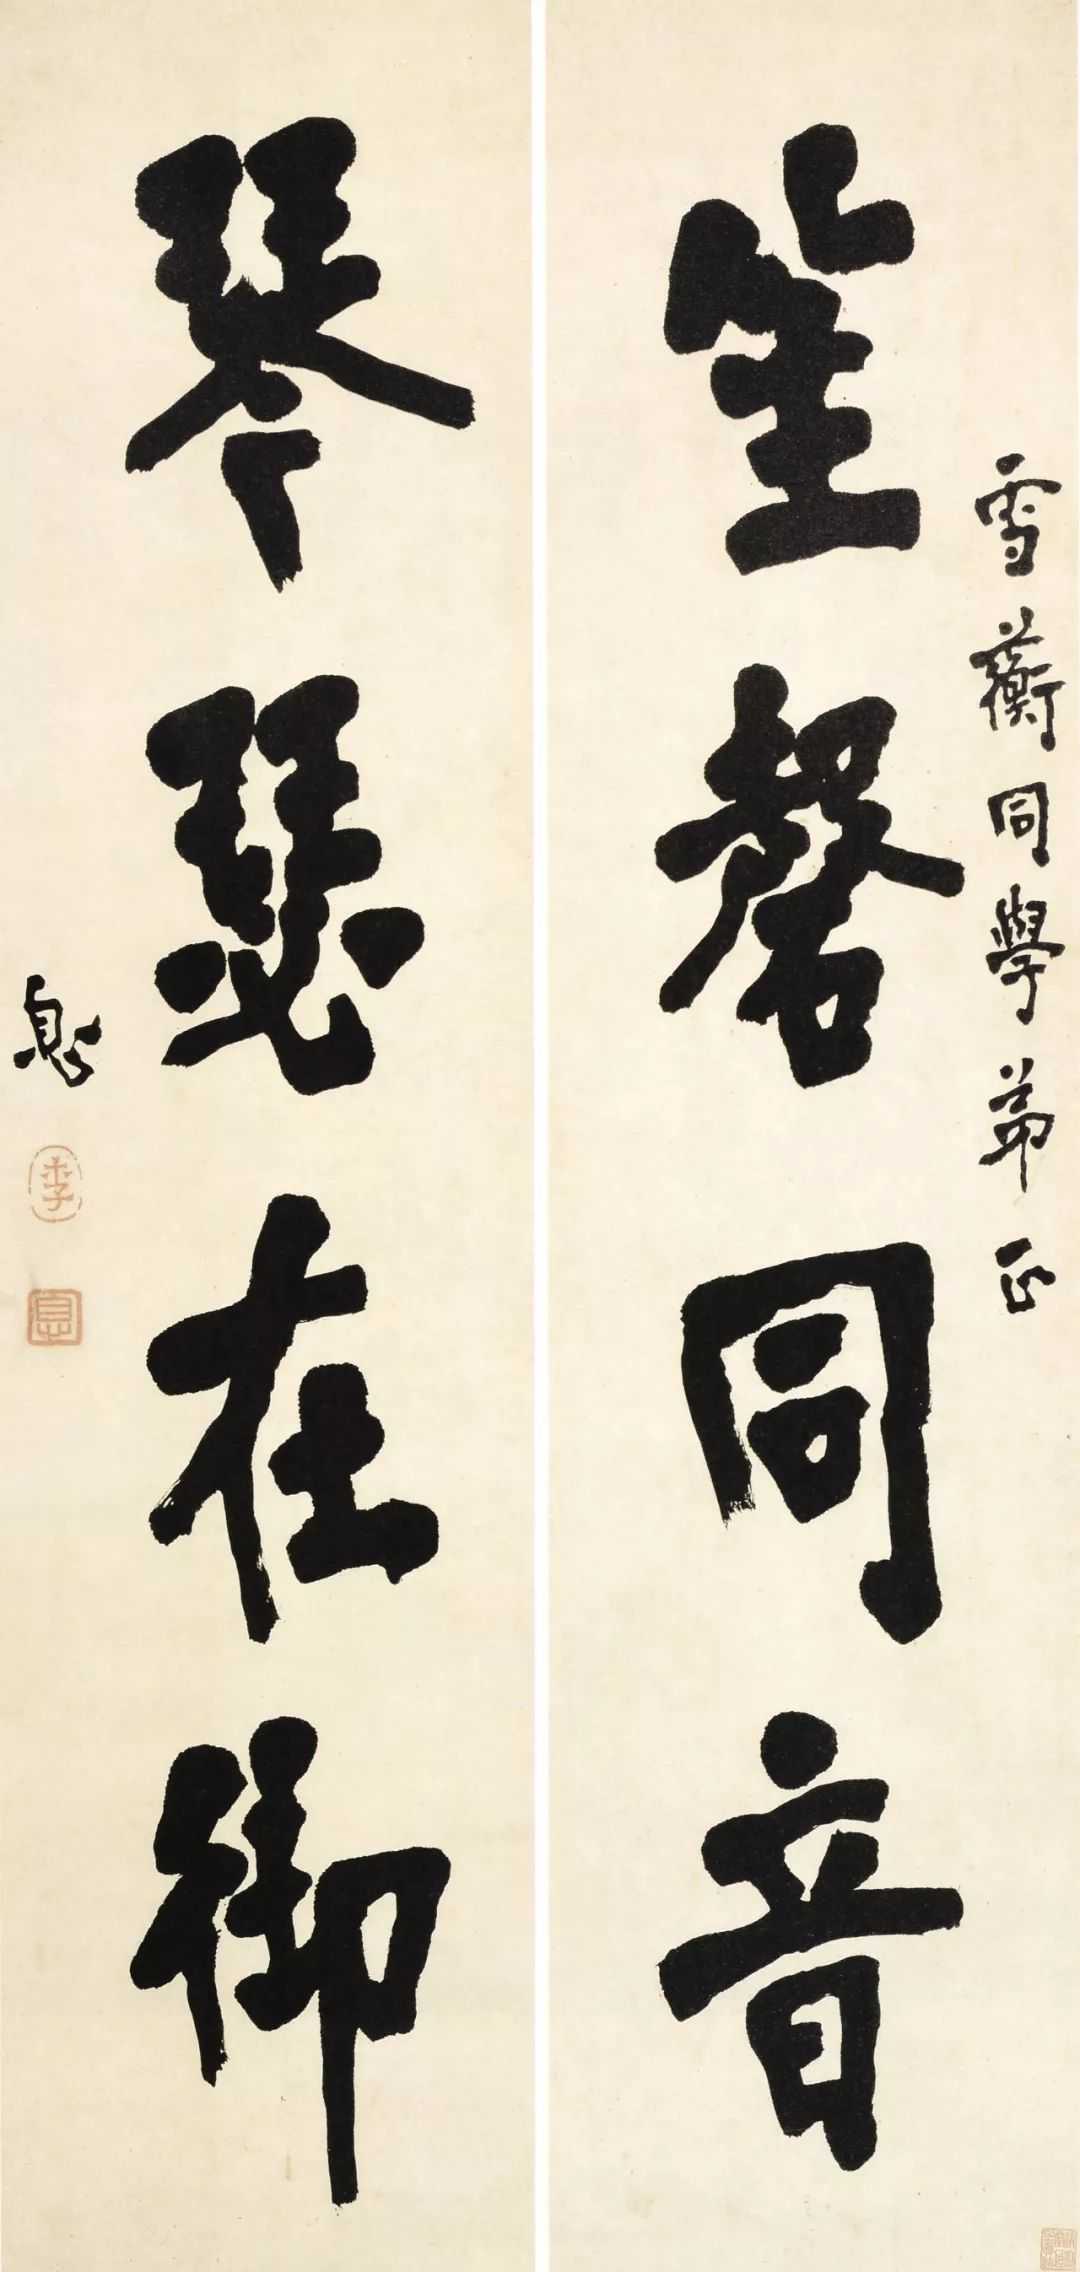 笙磬同音
雪蘅同學弟正
琴瑟在御
息
李
息